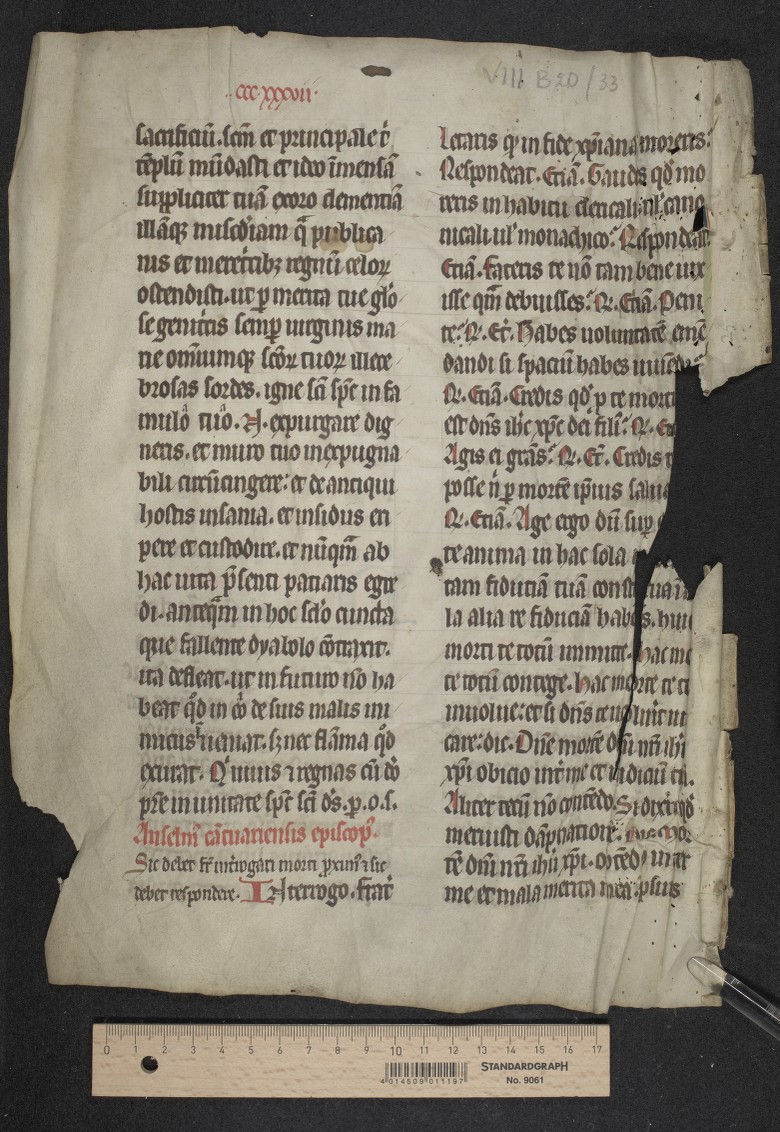 ccc·xxxvii·
VIII B20/33
sacrificiū. scm̄ et principale t̄
tēplū mūdasti et ideo īmensā
suppliciter tuā exoro clementiā
illāqꝫ miscd̓iam q̄ publica
nis et meret̓cibꝫ regnū celoꝝ
ostendisti. ut ꝑ merita tue glo̓
se genitͥcis semꝑ uirginis ma
rie om̄iumqꝫ scōꝝ tuoꝝ illece
brosas sordes. igne scī spc̄ in fa
mulo tuo. N. expurgare dig
neris. et muro tuo inexpugna
bili circūcingere: et de antiqui
hostis insania. et insidiis eri
pere et custodire. et nūqm̄ ab
hac uita p̄senti patiaris egre
di. anteq̄m in hoc sclo̓ cuncta
que fallente dyabolo cōtraxit.
ita defleat. ut in futuro nō ha
beat qͦd in eo̓ de suis malis ini
micus ueniat. sꝫ nec flāma qͦd
exurat. Qͥ uiuis ⁊ regnas cū dō
pr̄e in unitate spc̄ scī ds̄. ꝑ. o. s.
Anselmͥ cātuariensis episcop̄.
Sic debet fr̄ int̓rogari morti ꝓximꝰ ⁊ sic
debet respondere. INterrogo. frat̄
Letaris qꝫ in fide xp̄iana moreris?
Respondeat. Etiā. Gaudes qd̓ mo
reris in habitu clericali ul̓ cano
nicali ul̓ monachico? Respondeat
Etiā. Fateris te nō tam bene uix
isse qm̄ debuisses? R̷. Etiā. Peni
tet? R̷. Et̄. Habes uoluntatē emē
dandi si spaciū habes uiuēdi?
R̷. Etiā. Credis qd̓ ꝑ te mortu
est dn̄s ihc̄ xpc̄ dei filiꝰ? R̷. Et
Agis ei grās? R̷. Et̄. Credis
posse n̄ ꝑ mortē ip̄ius salua
R̷. Etiā. Age ergo dū suꝑ
te anima in hac sola
tam fiduciā tuā constitua in
la alia re fiduciā habes. hui
morti te totū inmitte. hac mo
te totū contege. hac morte te to
inuolue: et si dn̄s te uoluit iu
care: dic. Dn̄e mortē dn̄i nr̄i ihū
xp̄i obicio int̓ me et iudiciū tū.
Aliter tecū nō contēdo. Si dix̓it qd̓
meruisti dāpnationē.
tē dn̄i nr̄i ihū xp̄i. int̓
me et mala merita mea ipsius